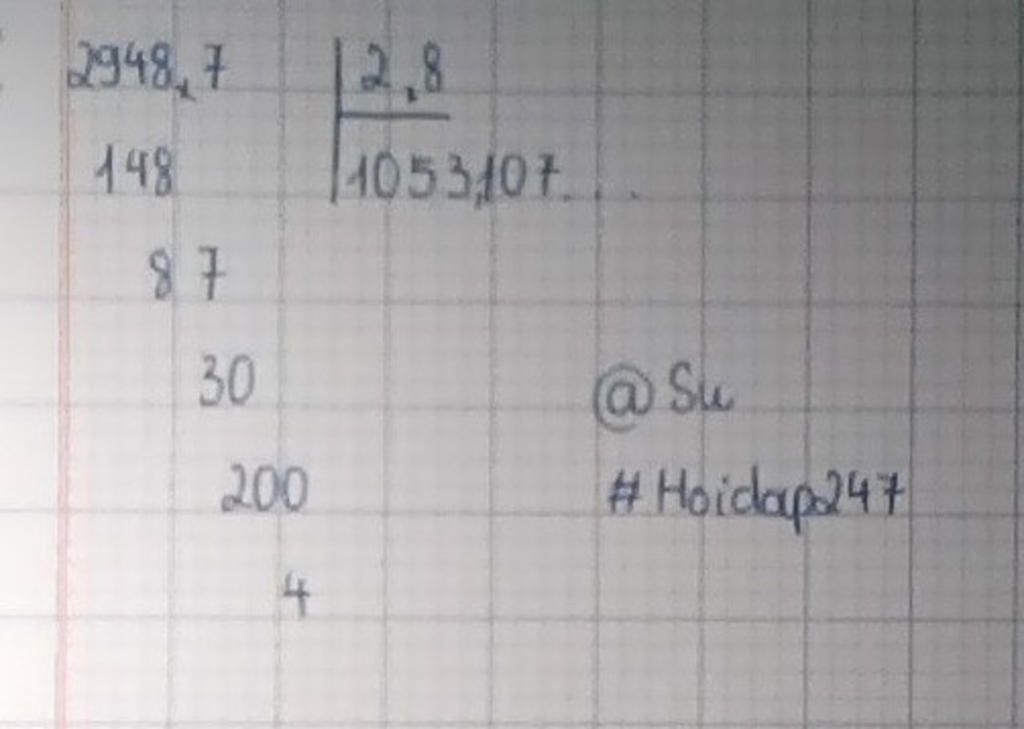 2948,7 2,8
148 1053,107...
87
30 @Su
200 #Hoidap247
4